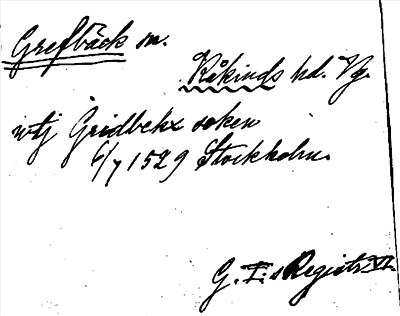 Grefbäck sn.
Kåkinds hd. Vg.
wtj Gridbekx soken
6/7 1529 Stockholm.
G. I:s Registr. VI.